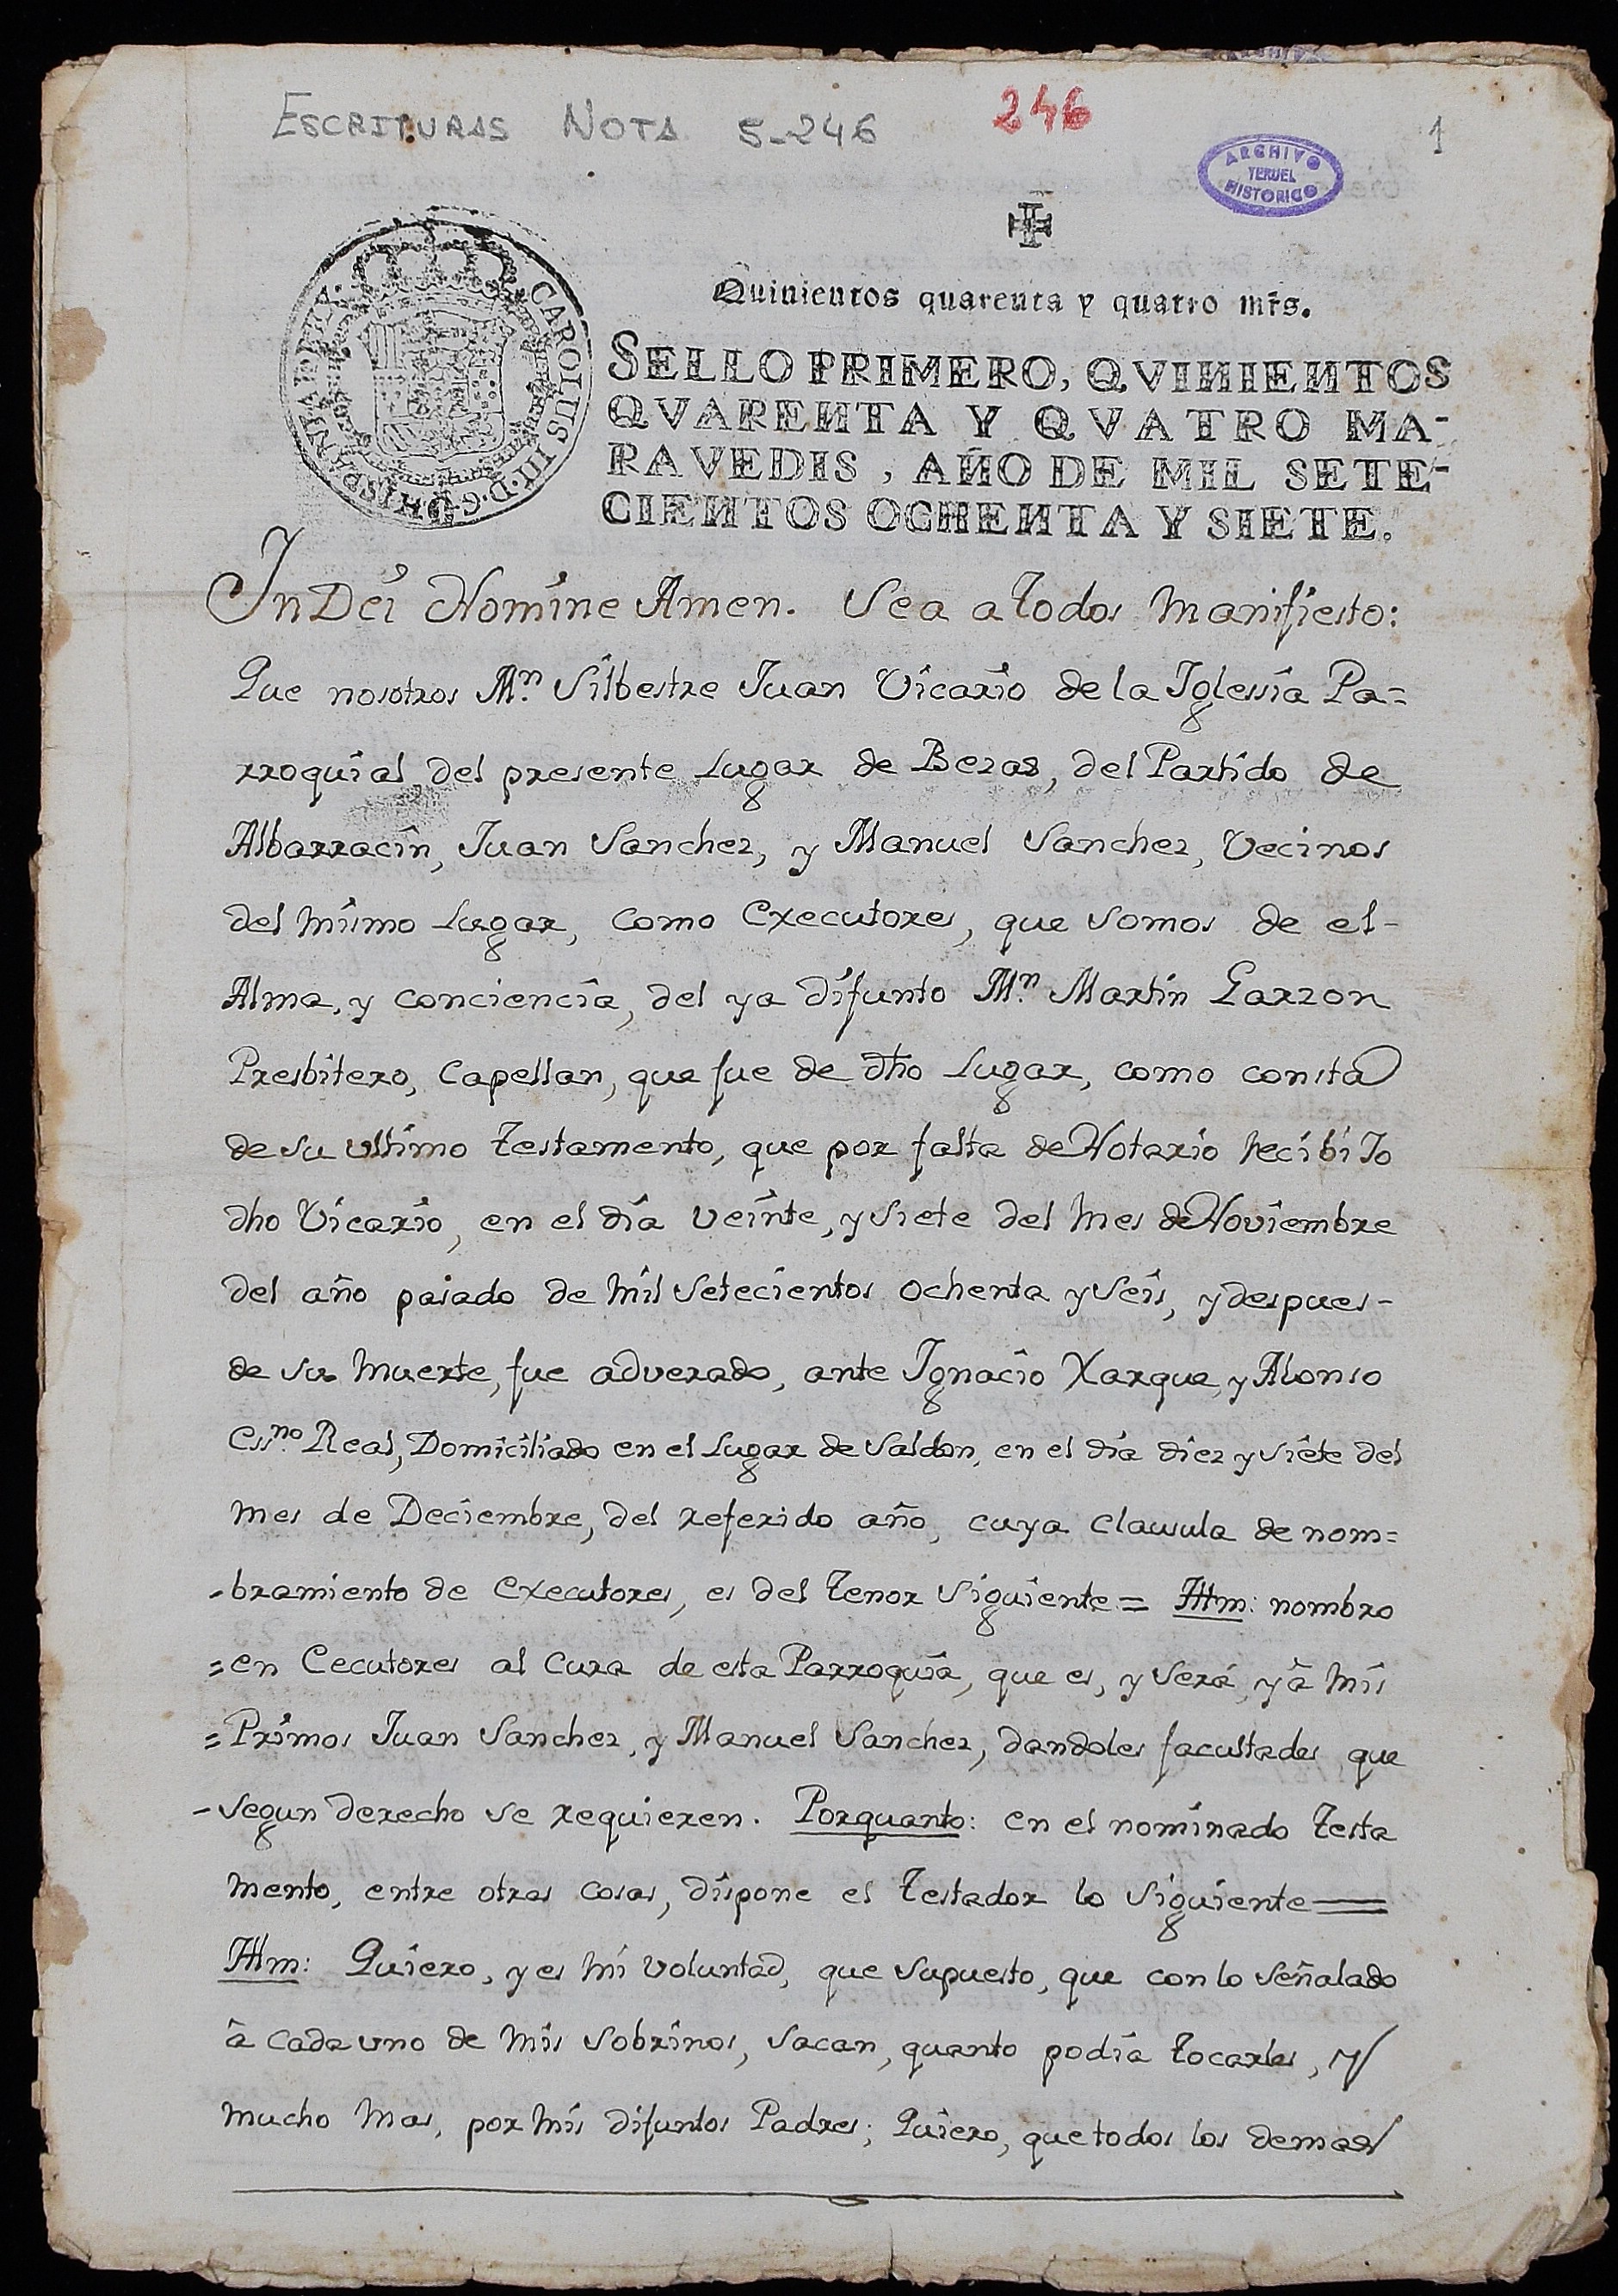 ESCRITURAS NOTA 5-246
246
1
ARCHIVO
TERUEL
HISTORICO
CAROLUS III D. G. HISPANIAR. REX.
Quinientos quarenta y quatro mrs.
SELLO PRIMERO, QVINIENTOS
QVARENTA Y QVATRO MA-
RAVEDIS, AÑO DE MIL SETE-
CIENTOS OCHENTA Y SIETE.
In Dei Nomine Amen. Sea a todos manifiesto:
Que nosotros Mn. Silbestre Juan Vicario de la Iglessia Pa=
rroquial, del presente Lugar de Bezas, del Partido de
Albarracin, Juan Sanchez, y Manuel Sanchez, Vecinos
del mismo Lugar, como Executores, que somos de el-
Alma, y conciencia, del ya difunto Mn. Martin Garzon
Presbitero, Capellan, que fue de dho Lugar, como consta
de su ultimo testamento, que por falta de Notario recibi Io
dho Vicario, en el dia veinte, y siete del mes de Noviembre
del año pasado de mil setecientos ochenta y seis, y despues-
de su muerte, fue adverado, ante Ignacio Xarque, y Alonso
Essno. Real, Domiciliado en el Lugar de Saldon, en el dia diez y siete del
mes de Deciembre, del referido año, cuya clausula de nom=
-bramiento de Executores, es del tenor siguiente = Ittm: nombro
=en Cecutores al Cura de esta Parroquia, que es, y será, y à mis
=Primos Juan Sanchez, y Manuel Sanchez, dandoles facultades, que
-segun derecho se requieren. Porquanto: en el nominado testa
mento, entre otras cosas, dispone el testador lo siguiente=
Ittm: Quiero, y es mi voluntad, que supuesto, que con lo señalado
à cada uno de mis sobrinos, sacan, quanto podia tocarles, y
mucho mas, por mis difuntos Padres; Quiero, que todos los demas